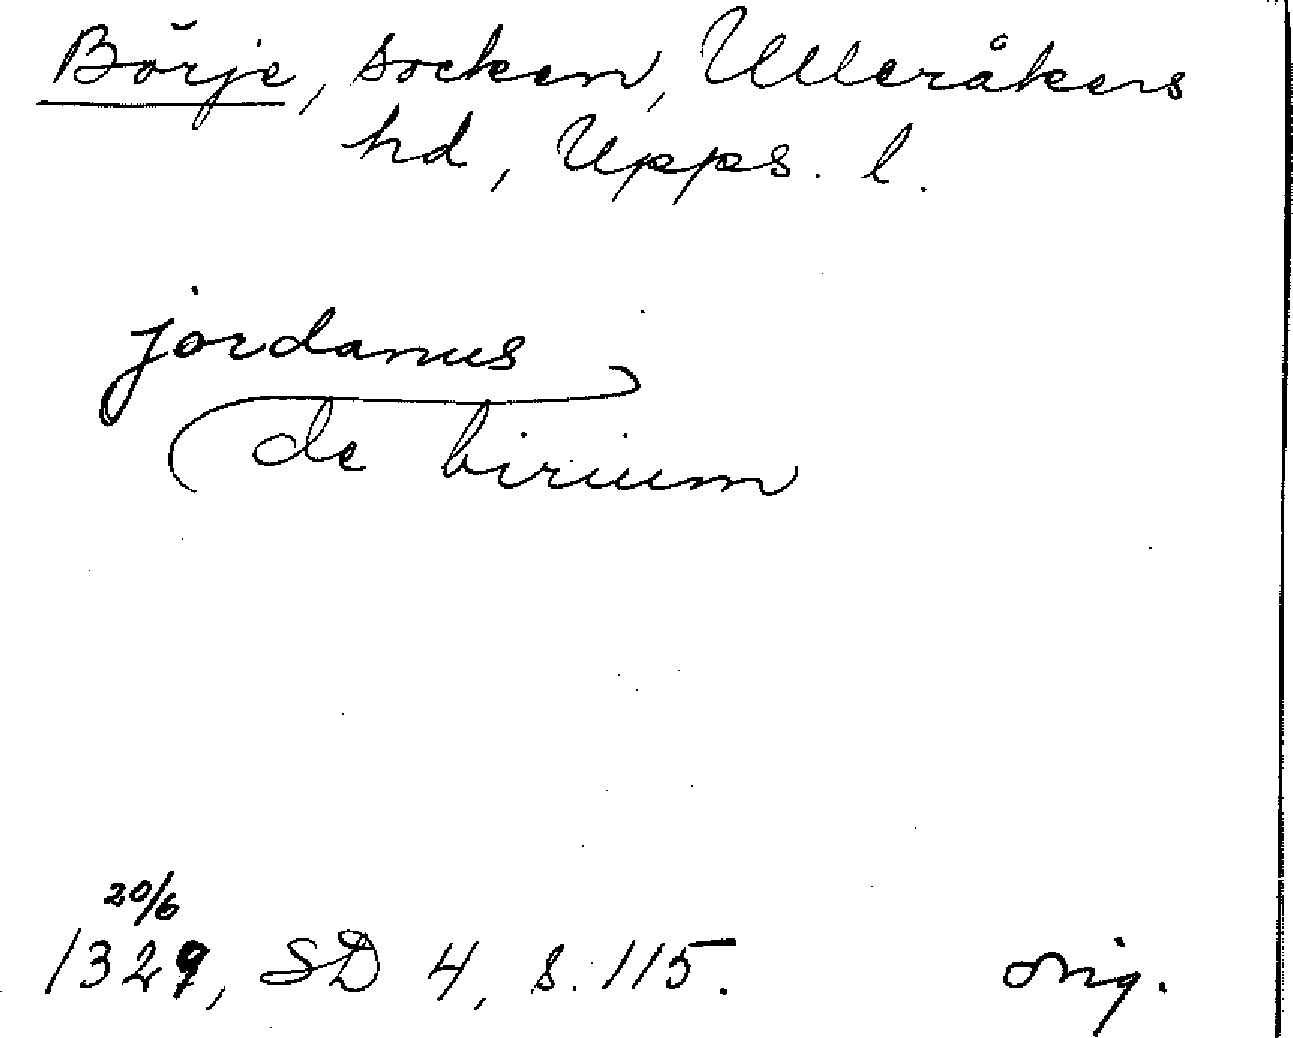 Börje, socken, Ulleråkers
hd, Upps. l.
jordanus
de birium
20/6
1329, SD 4, s. 115. orig.